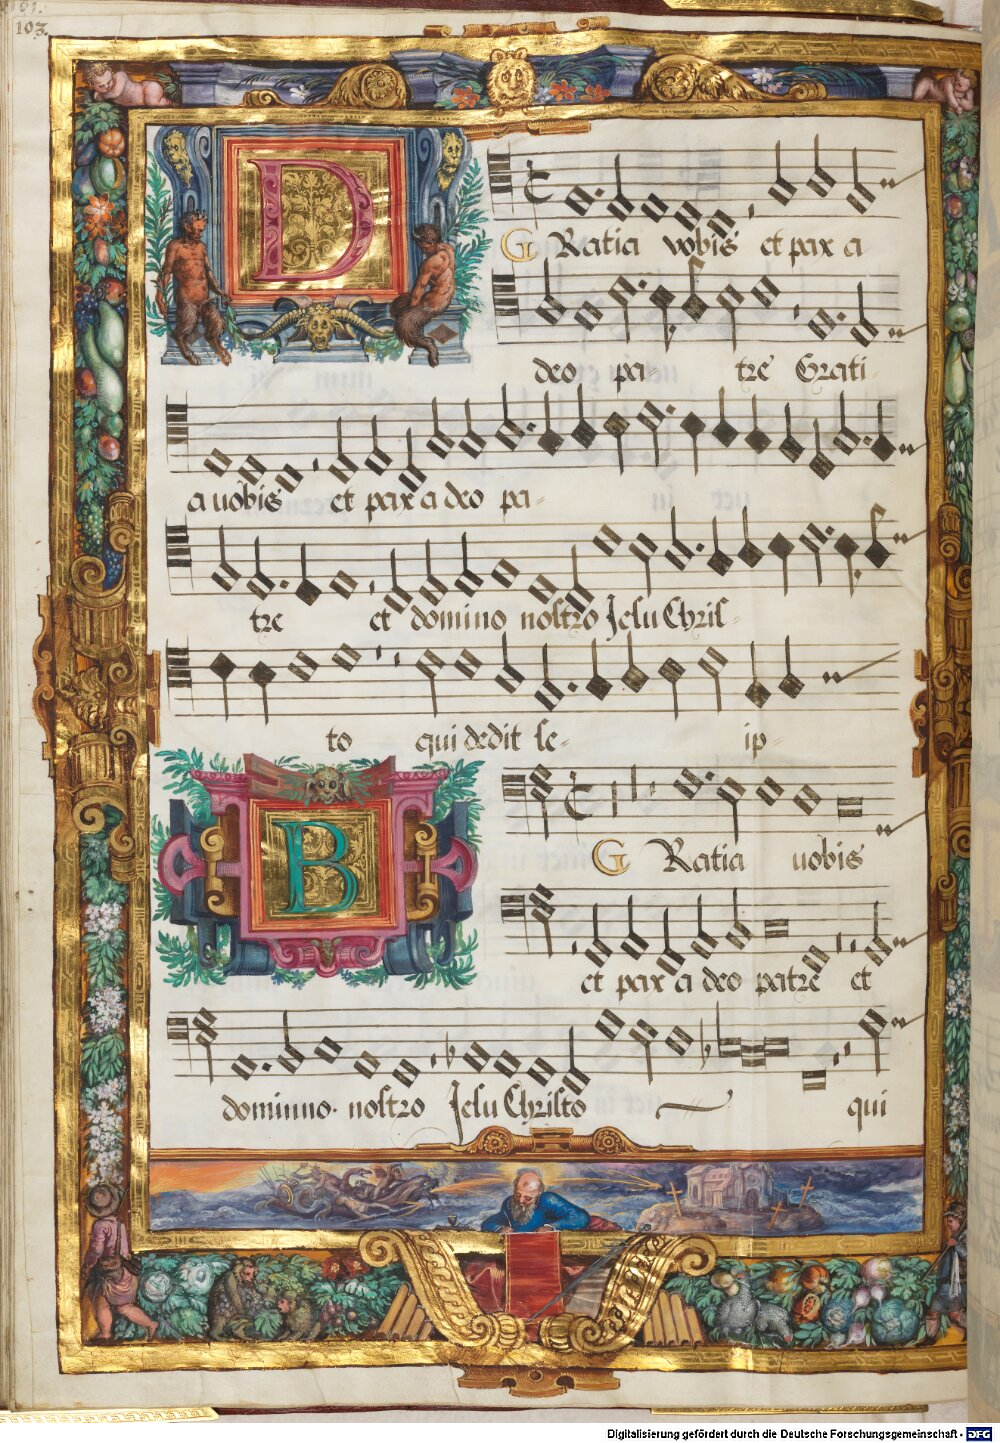 101.
103.
D
GRatia vobis et pax a
deo pa- tre Grati-
a uobis et pax a deo pa-
tre et domino nostro Jesu Chris-
to qui dedit se- ip-
B
GRatia uobis
et pax a deo patre et
dominno· nostro Jesu Christo qui
Digitalisierung gefördert durch die Deutsche Forschungsgemeinschaft - DFG